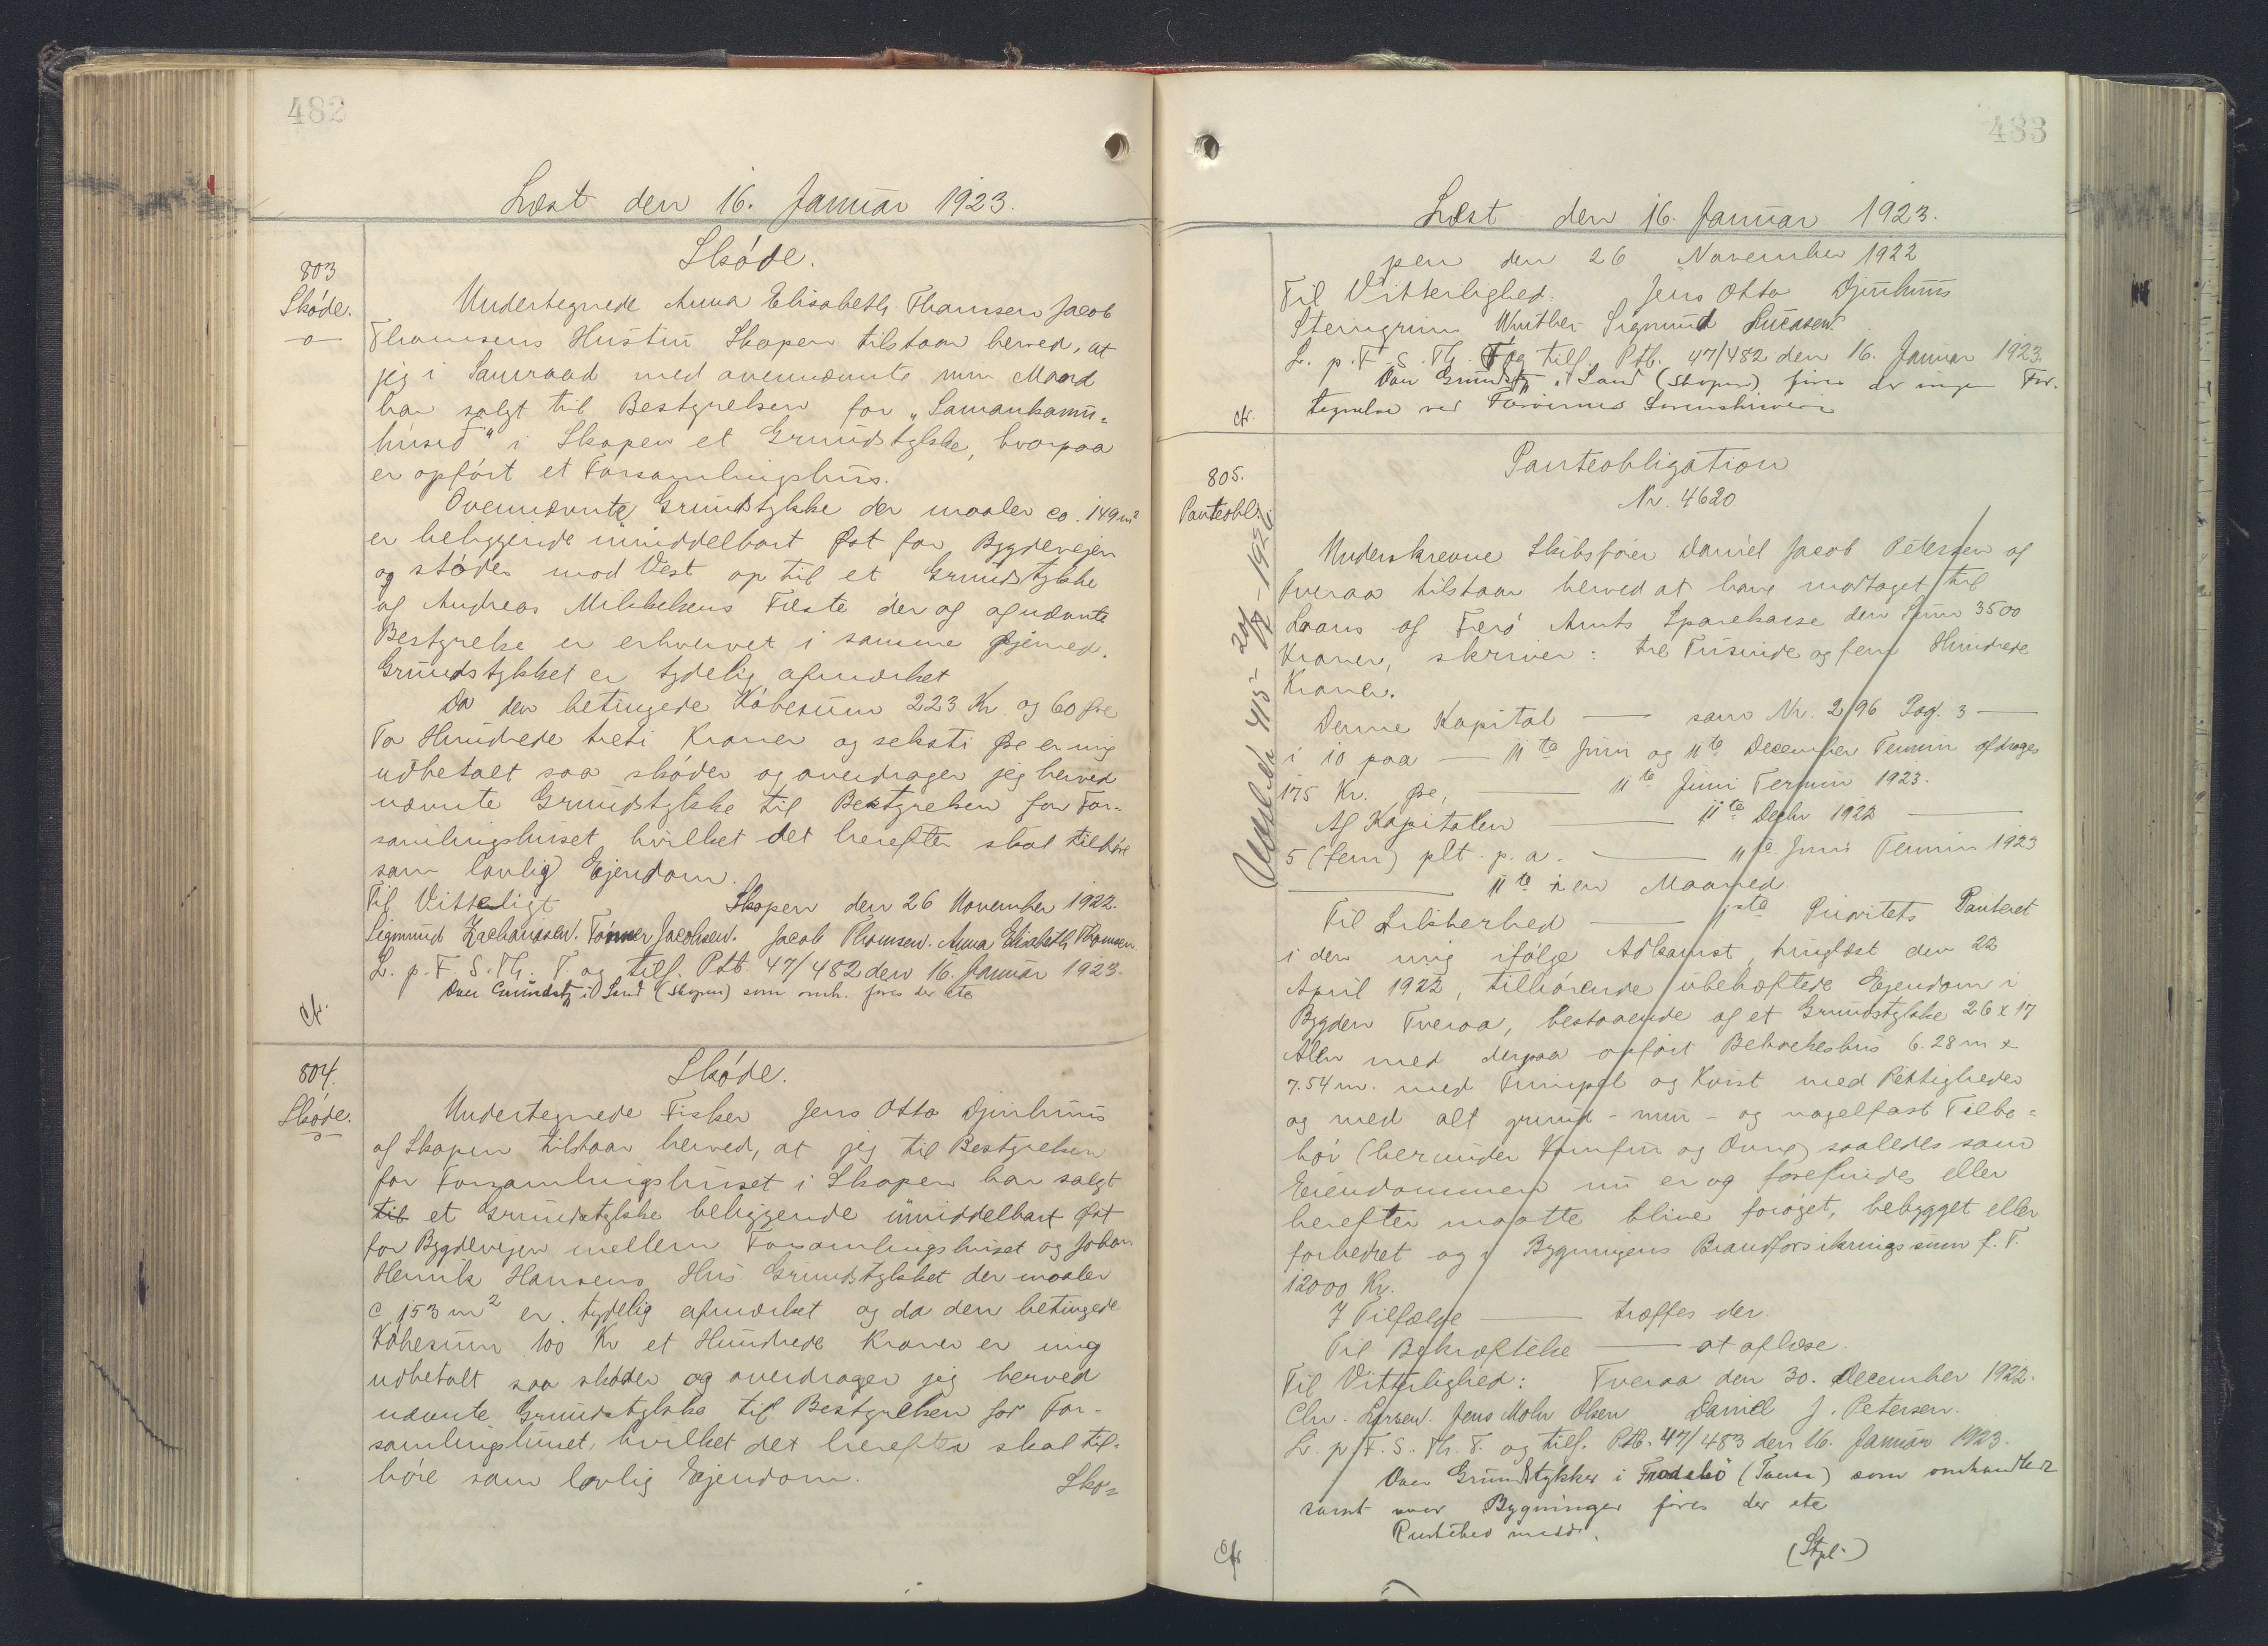 482
Læst den 16. Januar 1923.
803
Skøde.
Skøde.
Undertegnede Anna Elisabeth Thomsen Jacob
Thomsens Hustru Skopen tilstaar herved, at
jeg i Samraad med ovennævnte min Mand
har solgt til Bestyrelsen for „Samankomu-
húsið" i Skopen et Grundstykke, hvorpaa
er opført et Forsamlingshus.
Ovennævnte Grundstykke der maaler ca. 149 m²
er beliggende umiddelbart Øst for Bygdevejen
og støder mod Vest op til et Grundstykke
af Andreas Mikkelsens Fæste der og af nævnte
Bestyrelse er erhvervet i samme Øjemed.
Grundstykket er tydelig afmærket
Da den betingede Købesum 223 Kr. og 60 Øre
To Hundrede treti Kroner og seksti Øre er mig
udbetalt saa skøder og overdrager jeg herved
nævnte Grundstykke til Bestyrelsen for For-
samlingshuset, hvilket det herefter skal tilhøre
som lovlig Ejendom.
Til Vitterligt Skopen den 26 November 1922.
Sigmund Zachariasen. Tommer Jacobsen. Jacob Thomsen. Anna Elisabeth Thomsen.
L. p. F. S. Th. T. og tilf. Ptb 47/482 den 16. Januar 1923.
Over Grundstk i Sand (Skopen) som omh. føres der ete
cfr.
804.
Skøde.
Skøde.
Undertegnede Fisker Jens Otto Djurhuus
af Skopen tilstaar herved, at jeg til Bestyrelsen
for Forsamlingshuset i Skopen har solgt
til et Grundstykke beliggende umiddelbart Øst
for Bygdevejen mellem Forsamlingshuset og Johan
Henrik Hansens Hus. Grundstykket der maaler
c 153 m² er tydelig afmærket og da den betingede
Købesum 100 Kr et Hundrede Kroner er mig
udbetalt saa skøder og overdrager jeg herved
nævnte Grundstykke til Bestyrelsen for For-
samlingshuset, hvilket det herefter skal til-
høre som lovlig Ejendom.
Sko-
483
Læst den 16. Januar 1923.
pen den 26 November 1922
Til Vitterlighed. Jens Otto Djurhuus
Steingrim Winther Sigmund Lucasen
L. p. F. S. Th. T og tilf. Ptb. 47/482 den 16. Januar 1923.
Over Grundstk i Sand (Skopen) føres der ingen For-
tegnelse ved Færøernes Sorenskriveri
cfr.
805.
Panteobl.
Panteobligation
Nr. 4620
Underskrevne Skibsfører Daniel Jacob Petersen af
Tveraa tilstaar herved at have modtaget til
Laans af Færø Amts Sparekasse den Sum 3500
Kroner, skriver: tre Tusinde og fem Hundrede
Kroner.
Denne Kapital som Nr. 296 Pag. 3
i 10 paa 11te Juni og 11te December Termin afdrages
175 Kr. Øre, 11te Juni Termin 1923.
Af Kapitalen 11te Decbr 1922
5 (fem) pCt. p. a. 11te Juni Termin 1923
11te i en Maaned.
Til Sikkerhed 1ste Prioritets Panteret
i den mig ifølge Adkomst, tinglæst den 22
April 1922, tilhørende ubehæftede Ejendom i
Bygden Tveraa, bestaaende af et Grundstykke 26 x 17
Alen med derpaa opført Beboelseshus 6.28 m x
7.54 m. med Trempel og Kvist med Rettigheder
og med alt grund- mur- og nagelfast Tilbe-
hør (herunder Komfur og Ovne) saaledes som
Ejendommen nu er og forefindes eller
herefter maatte blive forøget, bebygget eller
forbedret og i Bygningens Brandforsikringssum f. T.
12000 Kr.
I Tilfælde træffes der.
Til Bekræftelse at aflæse.
Til Vitterlighed: Tveraa den 30. December 1922.
Chr. Larsen. Jens Mohr Olsen Daniel J. Petersen.
L. p. F. S. Th. T. og tilf. Ptb. 47/483 den 16. Januar 1923.
Over Grundstykker i Froðebø (Tveraa) som omhandler
samt over Bygninger føres der ete
(Stpl.)
cfr